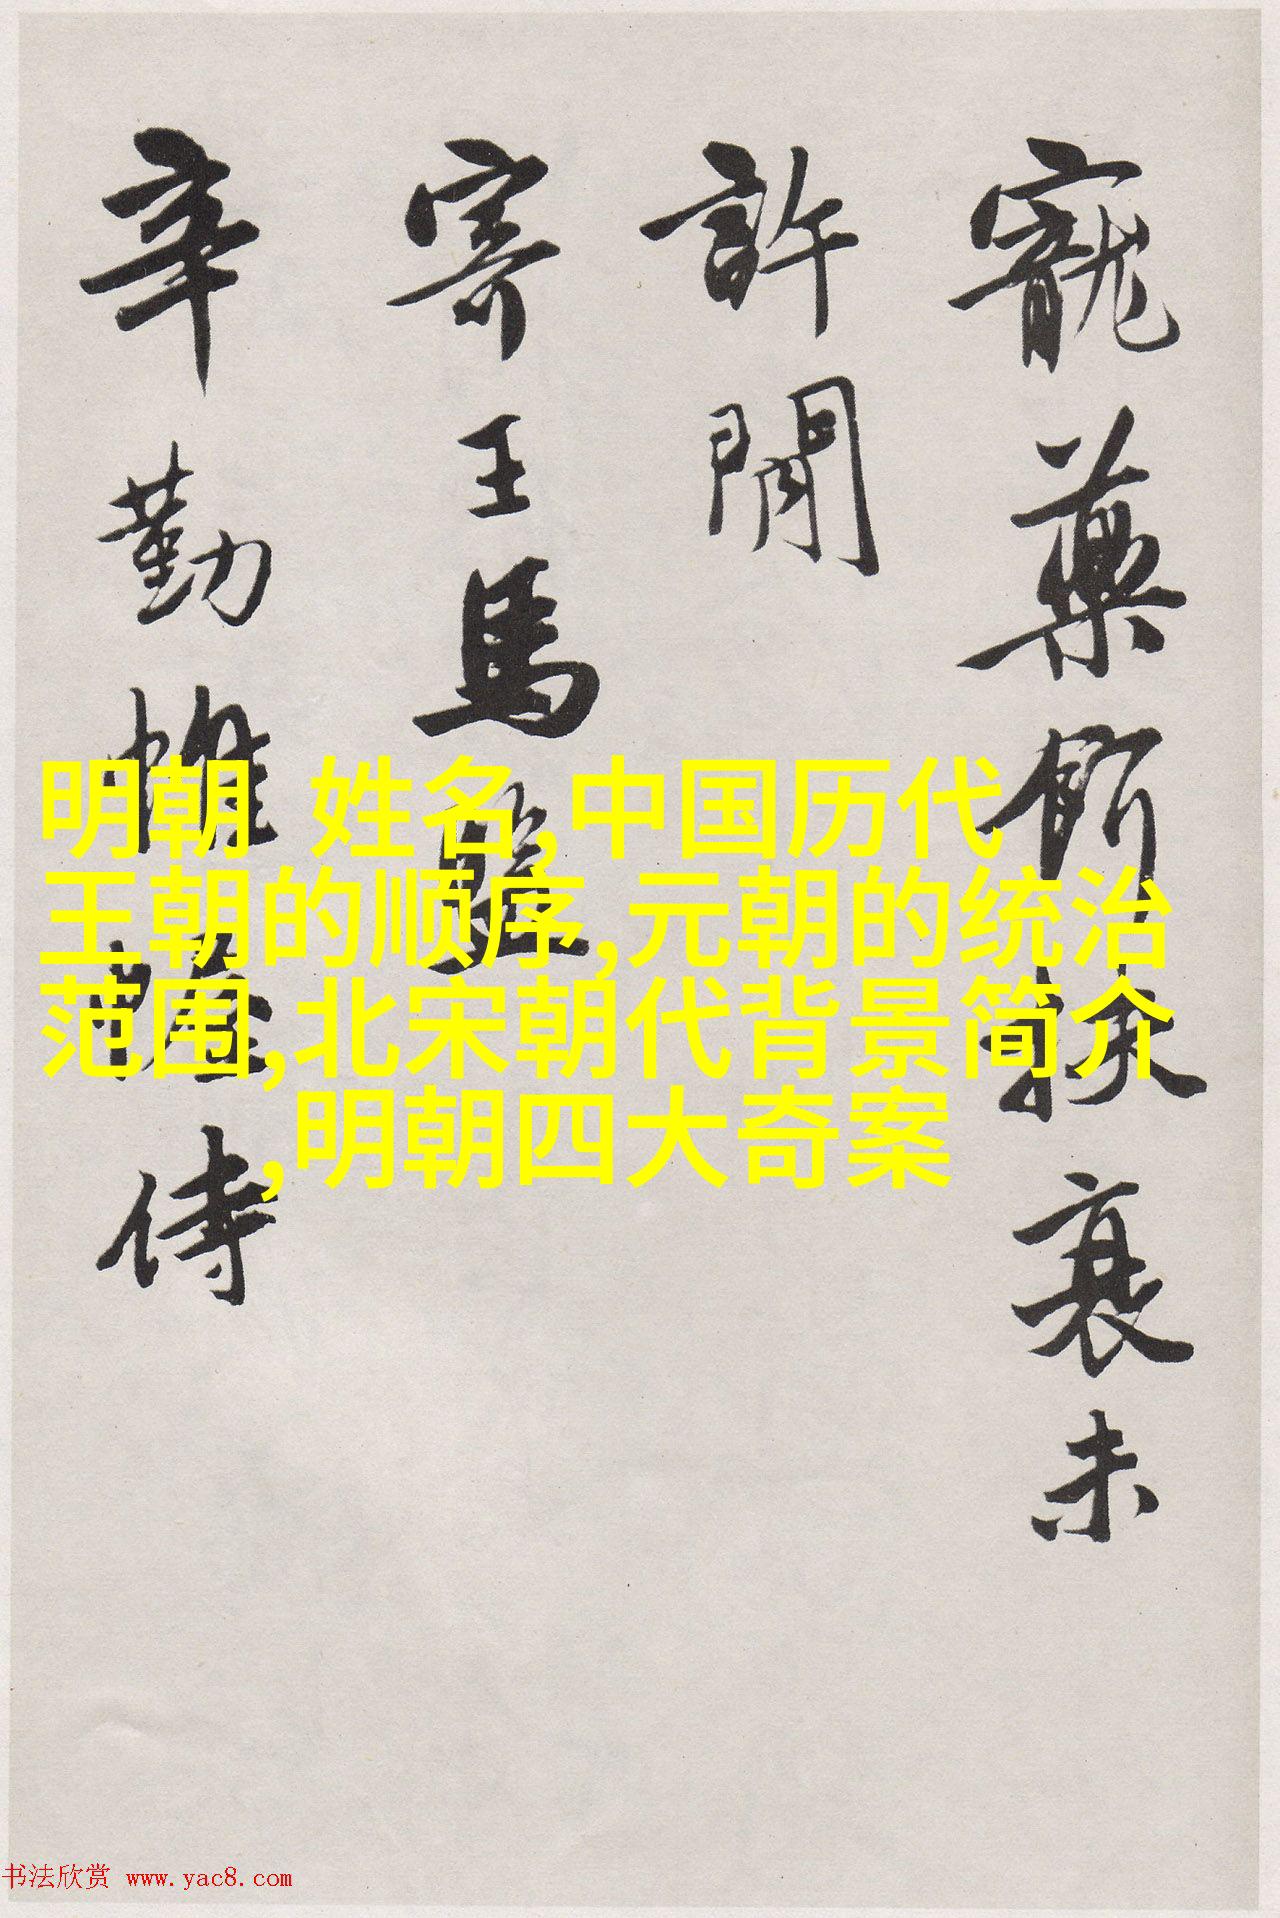 寵藥餌扶衰未
許閒
寄王馬監
辛勤帷幄侍
明朝 姓名,中国历代
王朝的顺序,元朝的统治
范围,北宋朝代背景简介
,明朝四大奇案
书法欣赏 www.yac8.com